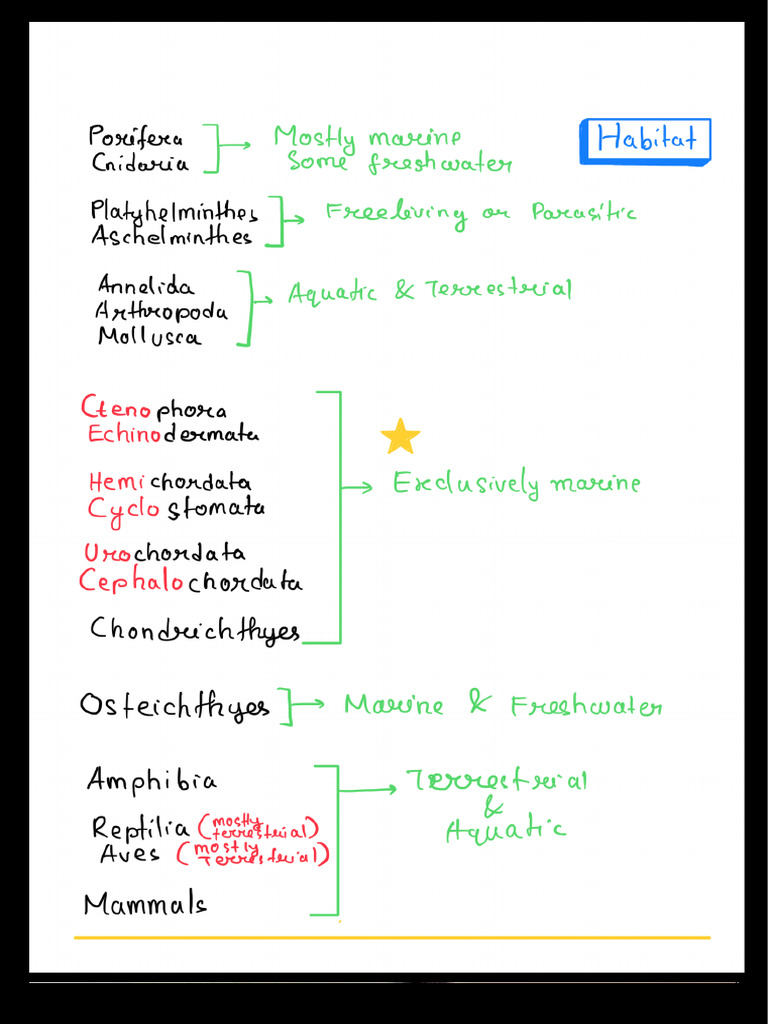 Habitat
Porifera
Cnidaria
Mostly marine
Some freshwater
Platyhelminthes
Aschelminthes
Freeliving or Parasitic
Annelida
Arthropoda
Mollusca
Aquatic & Terrestrial
Ctenophora
Echinodermata
Hemichordata
Cyclostomata
Urochordata
Cephalochordata
Chondrichthyes
Exclusively marine
Osteichthyes
Marine & Freshwater
Amphibia
Reptilia (mostly
terrestrial)
Aves (mostly
Terrestrial)
Mammals
Terrestrial
&
Aquatic